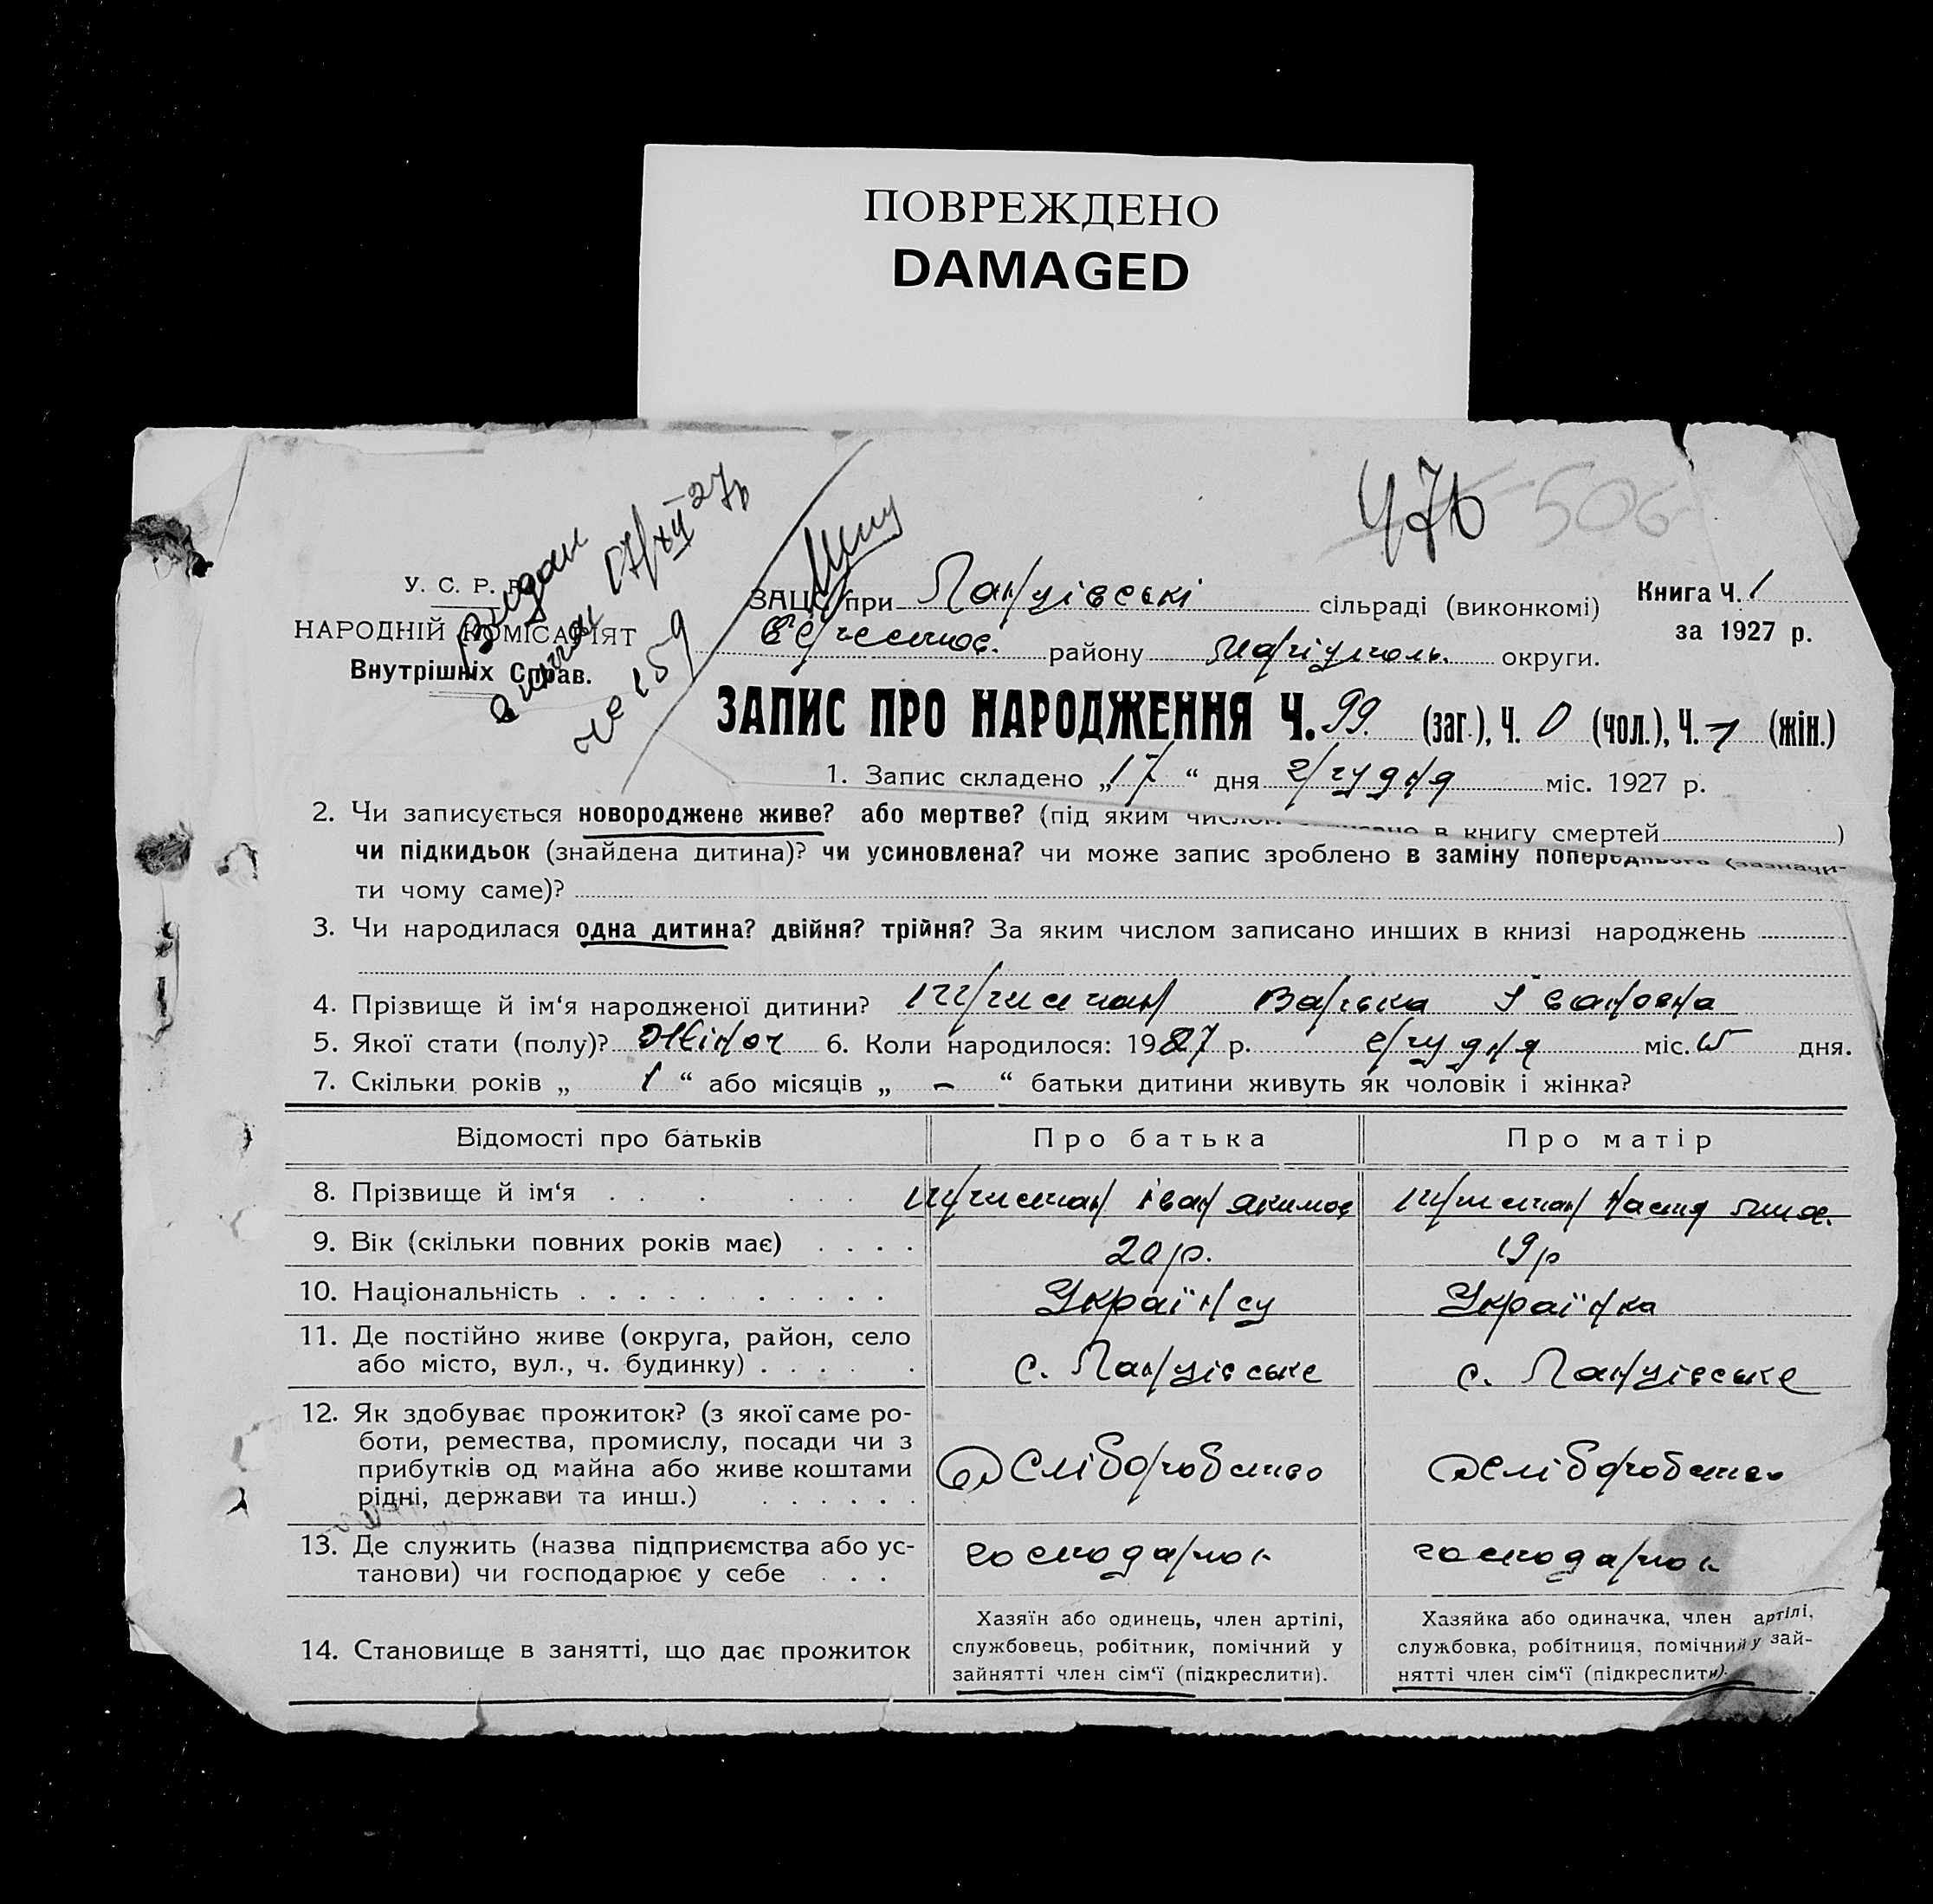 ПОВРЕЖДЕНО
DAMAGED
476 506
Видан
17/XII 27р
№ 159
У. С. Р. Р.
НАРОДНІЙ КОМІСАРІЯТ
Внутрішніх Справ.
ЗАЦС при Ланцівські сільраді (виконкомі)
району Маріупголь. округи.
Книга Ч. 1
за 1927 р.
ЗАПИС ПРО НАРОДЖЕННЯ Ч. 99. (заг.), Ч. 0 (чол.), Ч. 1 (жін.)
1. Запис складено „17“ дня грудня міс. 1927 р.
2. Чи записується новороджене живе? або мертве? (під яким числом в книгу смертей )
чи підкидьок (знайдена дитина)? чи усиновлена? чи може запис зроблено в заміну попереднього (зазначи-
ти чому саме)?
3. Чи народилася одна дитина? двійня? трійня? За яким числом записано инших в книзі народжень
4. Прізвище й ім‘я народженої дитини? Варька Івановна
5. Якої стати (полу)? Жіноч 6. Коли народилося: 1927 р. грудня міс. 15 дня.
7. Скільки років „ 1 “ або місяців „ – “ батьки дитини живуть як чоловік і жінка?
Відомості про батьків Про батька Про матір
8. Прізвище й ім‘я . . . . . . Іван Якимов Настя
9. Вік (скільки повних років має) . . . . 20 р. 19 р
10. Національність . . . . . . . . . . . Українсу Українка
11. Де постійно живе (округа, район, село
або місто, вул., ч. будинку) . . . . . . с. Ланцівське с. Ланцівське
12. Як здобуває прожиток? (з якої саме ро-
боти, ремества, промислу, посади чи з
прибутків од майна або живе коштами
рідні, держави та инш.) . . . . . .
Хсліборобство Хсліборобство
13. Де служить (назва підприємства або ус-
танови) чи господарює у себе . . .
господарюк господарюк
14. Становище в занятті, що дає прожиток
Хазяїн або одинець, член артілі,
службовець, робітник, помічний у
зайнятті член сім‘ї (підкреслити).
Хазяйка або одиначка, член артілі,
службовка, робітниця, помічний у зай-
нятті член сім‘ї (підкреслити).